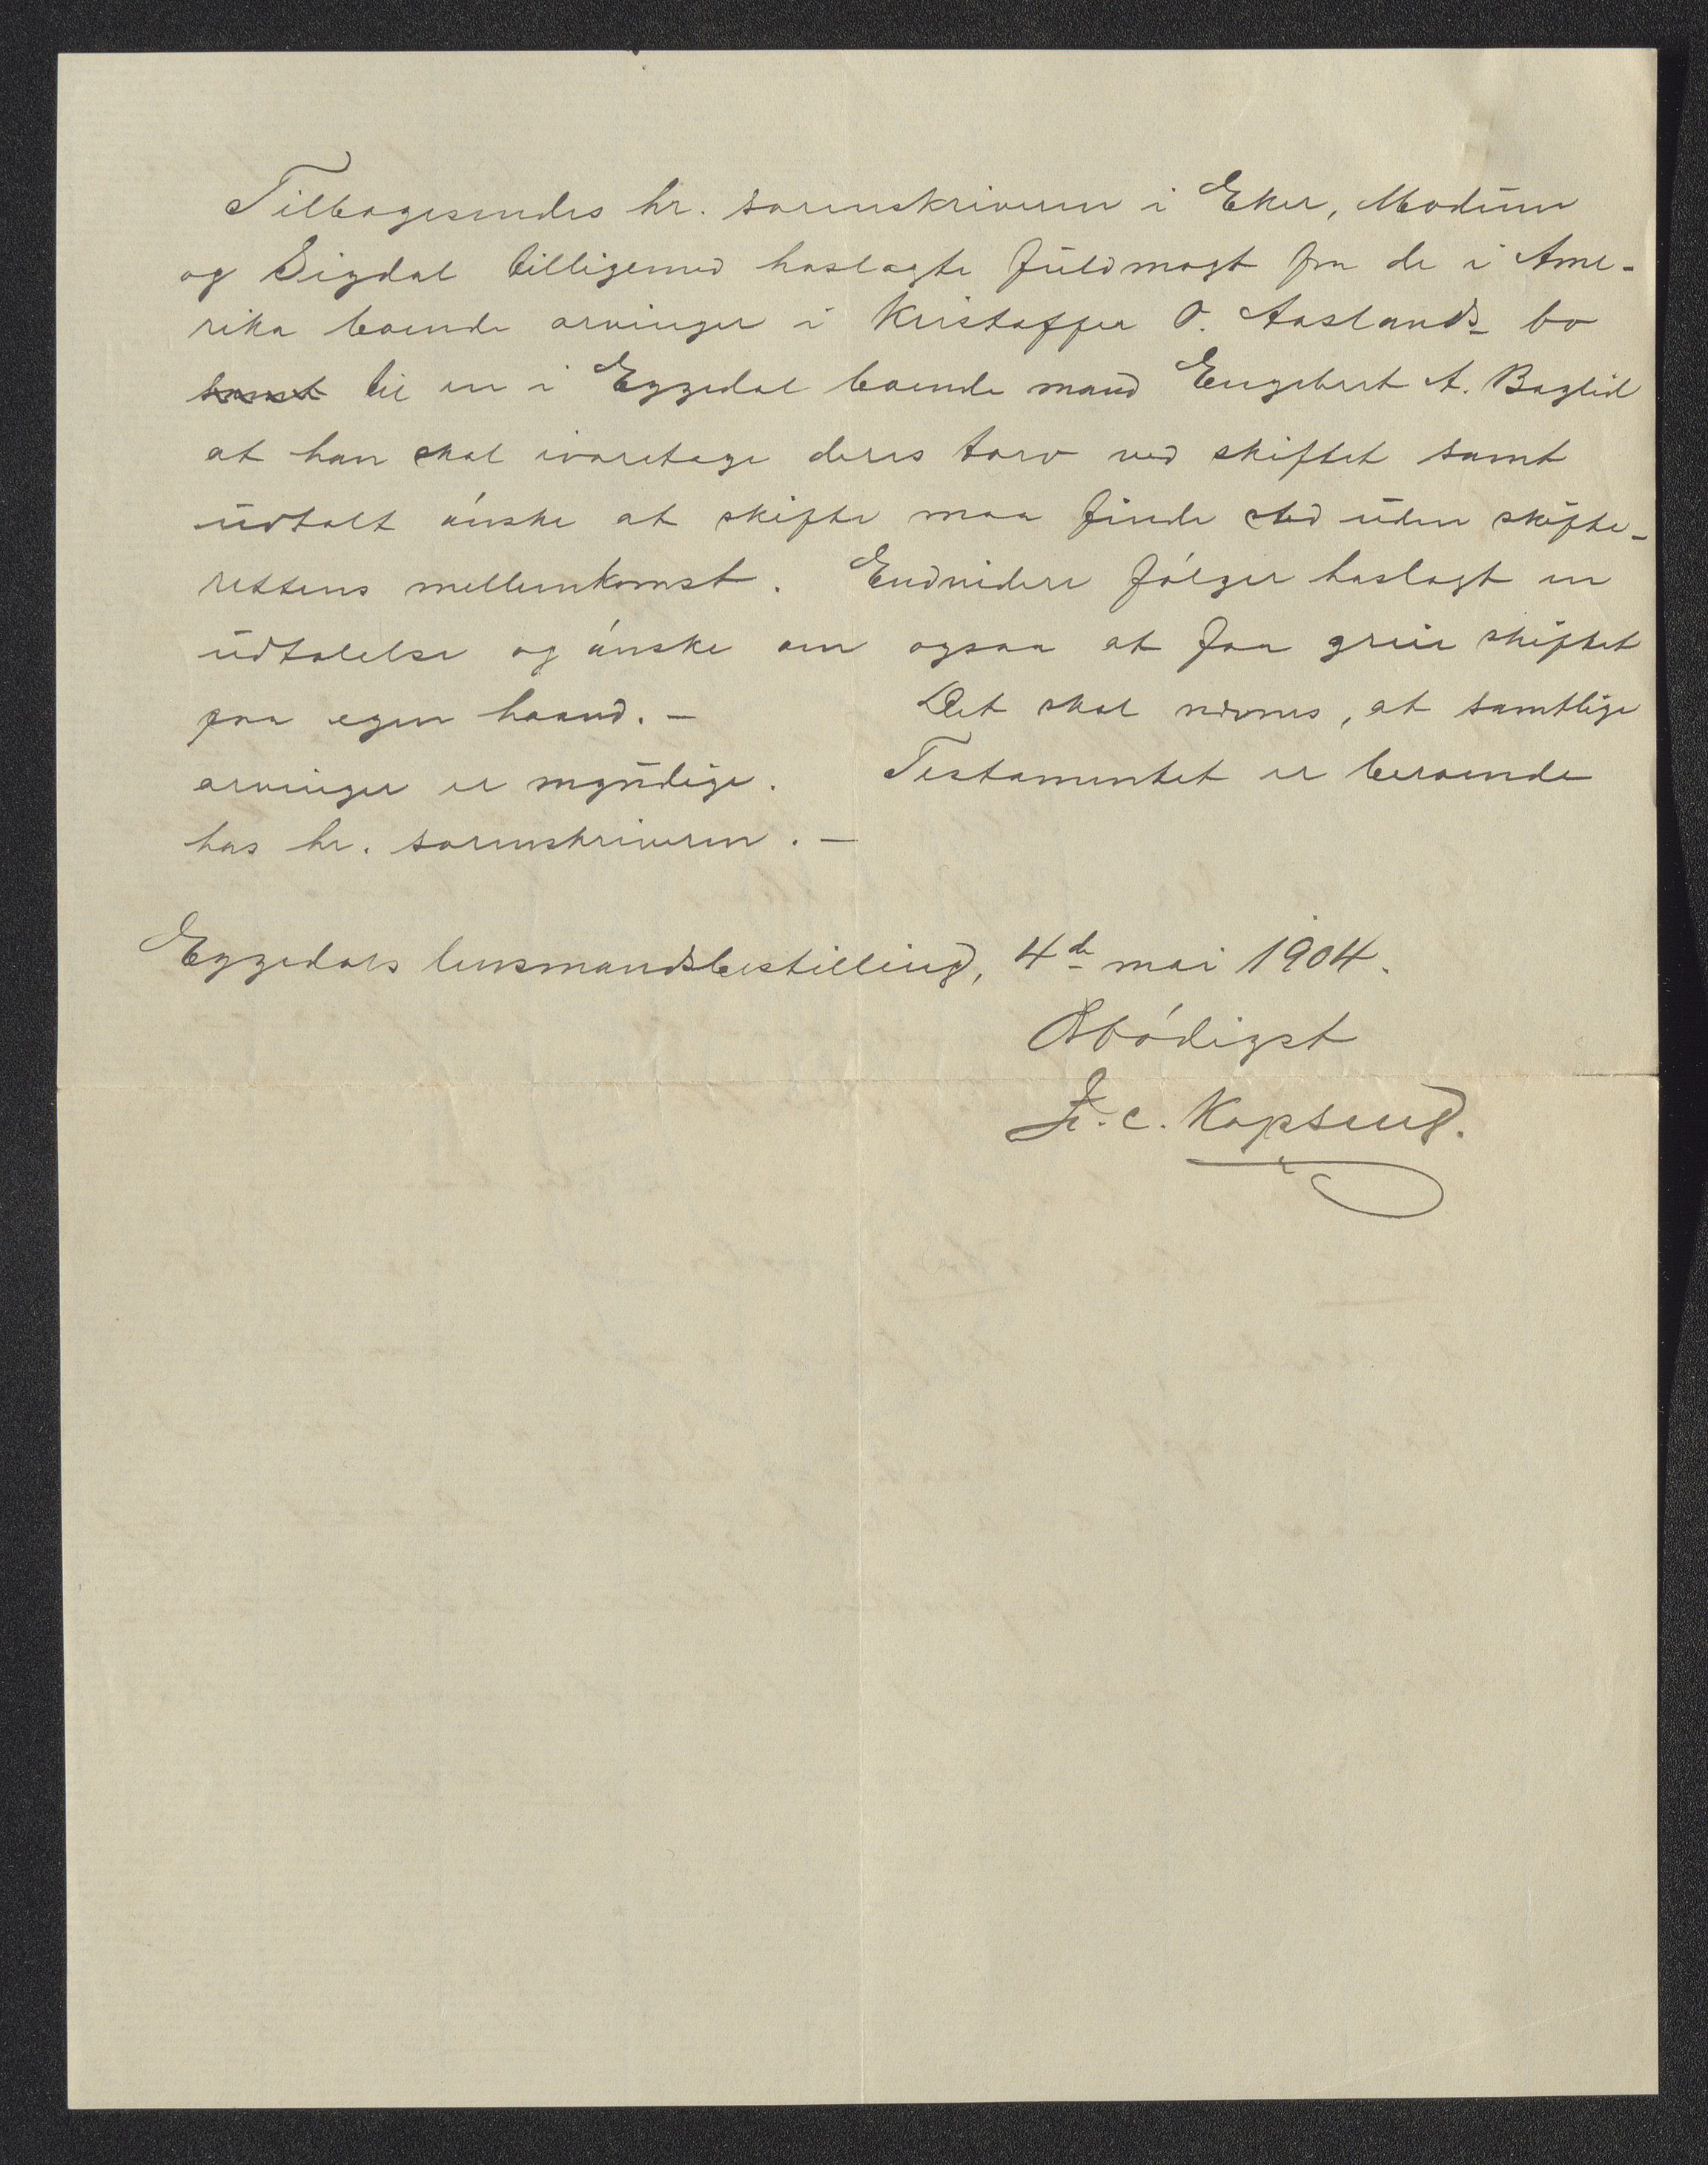 Tilbagesendes hr. sorenskriveren i Eker, Modum
og Sigdal tilligemed hoslagte fuldmagt fra de i Ame-
rika boende arvinger i Kristoffer O. Aaslands bo
samt til en i Eggedal boende mand Engebret A. Baglid
at han skal ivaretage deres tarv ved skiftet samt
udtalt ønske at skifte maa finde sted uden skifte-
rettens mellemkomst. Endvidere følger hoslagt en
udtalelse og ønske om ogsaa at faa greie skiftet
paa egen haand. — Det skal nævnes, at samtlige
arvinger er myndige. Testamentet er beroende
hos hr. sorenskriveren. —
Eggedals lensmandsbestilling, 4de mai 1904.
Ærbødigst
Kopseng.